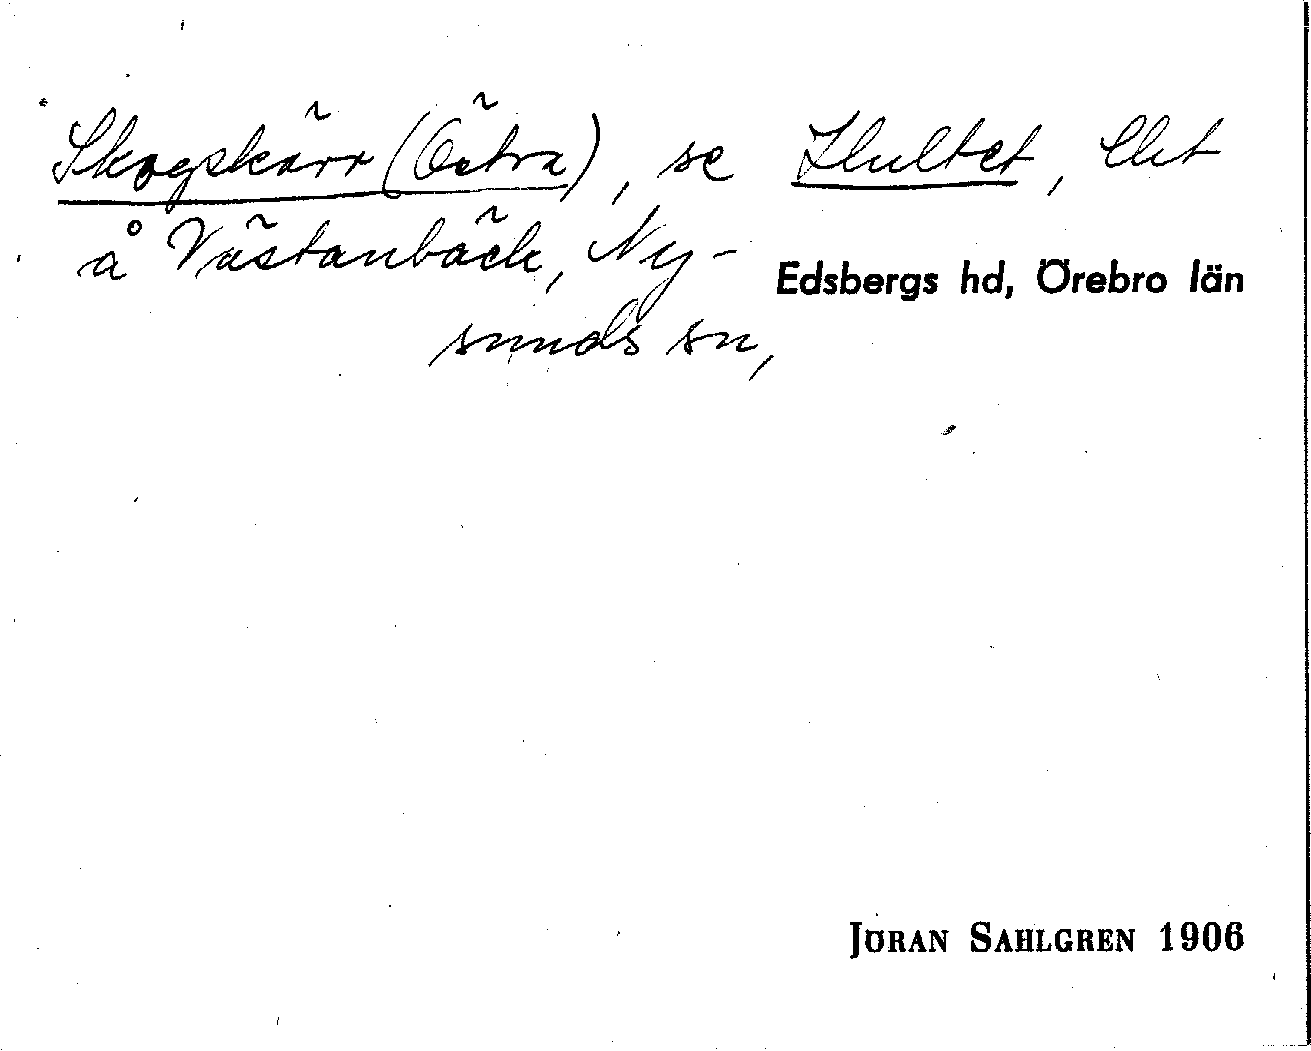 Skogskärr (Östra), se Hultet, lht
å Västanbäck, Ny-
Edsbergs hd, Örebro län
sunds sn,
JÖRAN SAHLGREN 1906